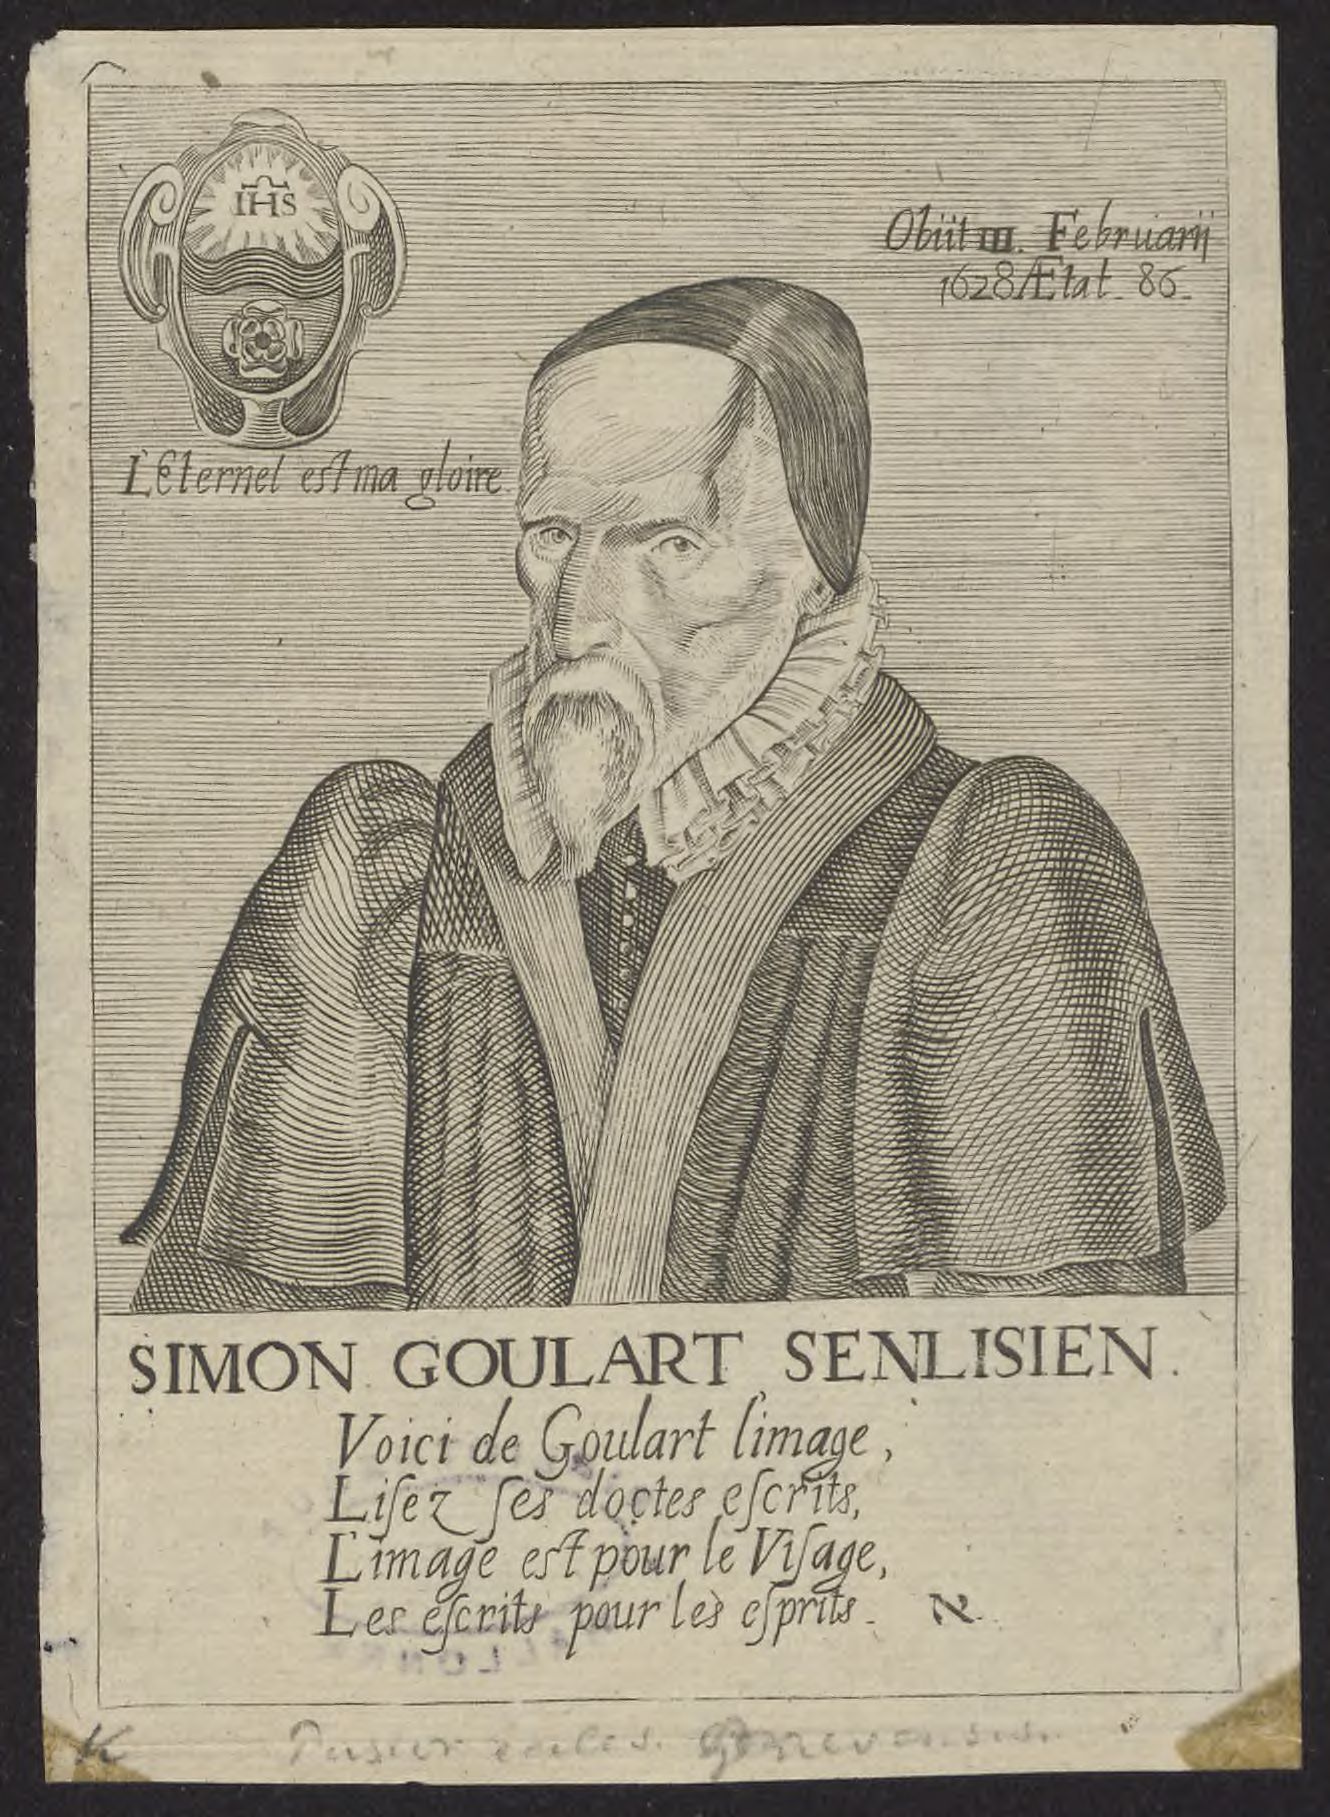 IHS
Obiit III. Februarij
1628 Ætat. 86.
L'Eternel est ma gloire
SIMON GOULART SENLISIEN.
Voici de Goulart l'image,
Liſez ſes doctes eſcrits,
L'image est pour le Viſage,
Les eſcrits pour les eſprits.
א
K
Genevensis.